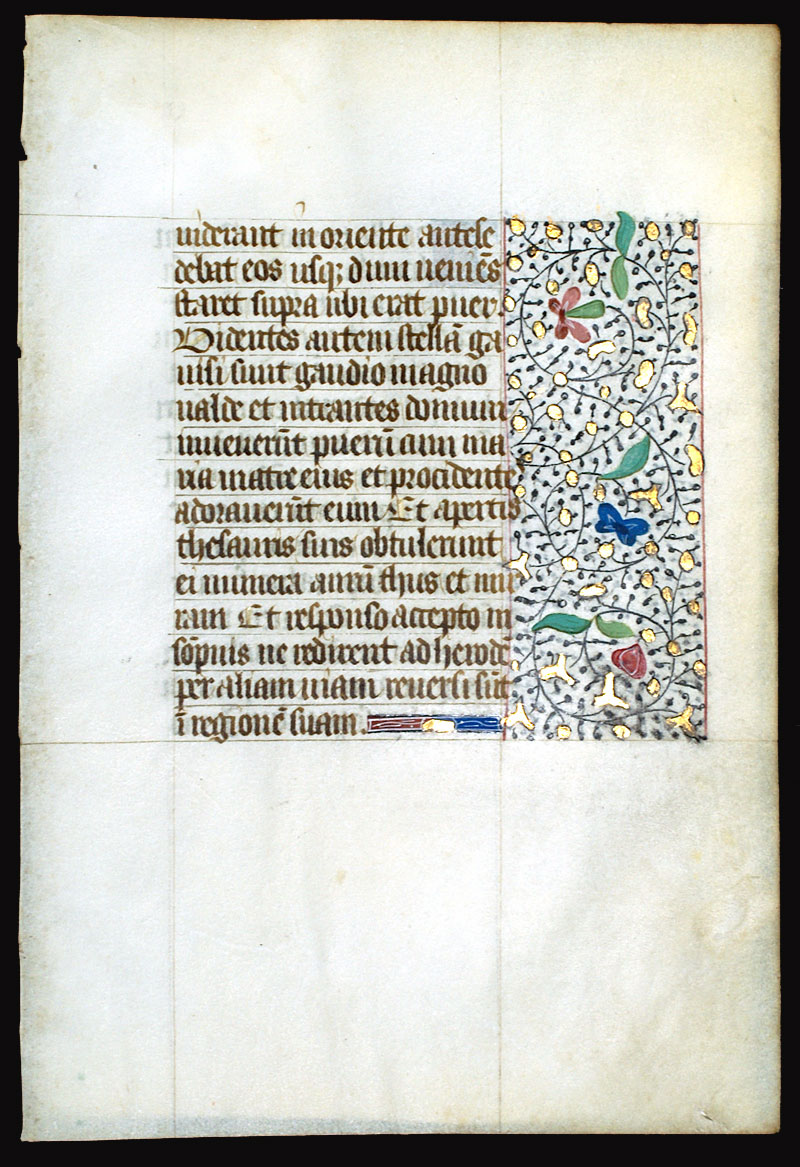 uiderant in oriente antece
debat eos usqȝ dum ueniēs
staret supra ubi erat puer.
Videntes autem stellā ga
uisi sunt gaudio magno
ualde et intrantes domum
inuenerūt puerū cum ma
ria matre eius et procidente
adorauerūt eum Et apertis
thesauris suis obtulerunt
ei munera aurū thus et mir
ram Et responso accepto in
sōpnis ne redirent ad herodē
per aliam uiam reuersi sūt
ī regionē suam.